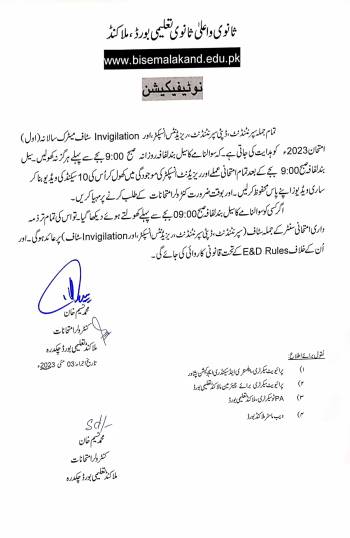 ثانوی و اعلیٰ ثانوی تعلیمی بورڈ، ملاکنڈ
www.bisemalakand.edu.pk
نوٹیفیکیشن
تمام جملہ سپرنٹنڈنٹ، ڈپٹی سپرنٹنڈنٹ، ریزیڈنٹس انسپکٹر، اور Invigilation سٹاف میٹرک سالانہ (اول)
امتحان 2023ء کو ہدایت کی جاتی ہے۔ کہ سوالنامے کا سیل بند لفافہ روزانہ صبح 9:00 بجے سے پہلے ہرگز نہ کھولیں۔ سیل
بند لفافہ 9:00 بجے کے بعد تمام امتحانی عملے اور ریزیڈنٹس انسپکٹر کی موجودگی میں کھول کر اُس کی 10 سیکنڈ کی ویڈیو بنا کر
ساری ویڈیوز اپنے پاس محفوظ کر لیں۔ اور بوقت ضرورت کنٹرولر امتحانات کے طلب کرنے پر مہیا کریں۔
اگر کسی کو سوالنامے کا سیل بند لفافہ صبح 09:00 بجے سے پہلے کھولتے ہوئے دیکھا گیا۔ تو اس کی تمام تر ذمہ
داری امتحانی سنٹر کے جملہ سٹاف (سپرنٹنڈنٹ، ڈپٹی سپرنٹنڈنٹ، ریزیڈنٹس انسپکٹر، اور Invigilation سٹاف) پر عائد ہوگی۔ اور
اُن کے خلاف E&D Rules کے تحت قانونی کاروائی کی جائے گی۔
محمد نسیم خان
کنٹرولر امتحانات
ملاکنڈ تعلیمی بورڈ چکدرہ
تاریخ اجراء: 03 مئی 2023ء
نقول برائے اطلاع:
۱) پرائیویٹ سیکرٹری، ایلیمنٹری اینڈ سیکنڈری ایجوکیشن پشاور
۲) پرائیویٹ سیکرٹری برائے چیئرمین ملاکنڈ تعلیمی بورڈ
۳) PA ٹو سیکرٹری، ملاکنڈ تعلیمی بورڈ
۴) ویب ماسٹر ملاکنڈ بورڈ
Sd/-
محمد نسیم خان
کنٹرولر امتحانات
ملاکنڈ تعلیمی بورڈ چکدرہ